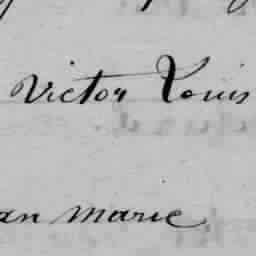 Victor Louis
an Marie